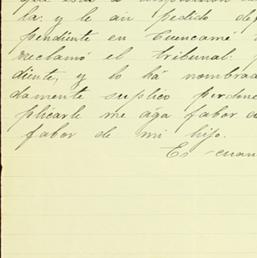 la: y le an pedido de
pendiente en Cuencamé
reclamó el tribunal.
diente, y lo há nombrad
damente suplico perdone
plicarle me aga fabor d
fabor de mi hijo.
Es cuan